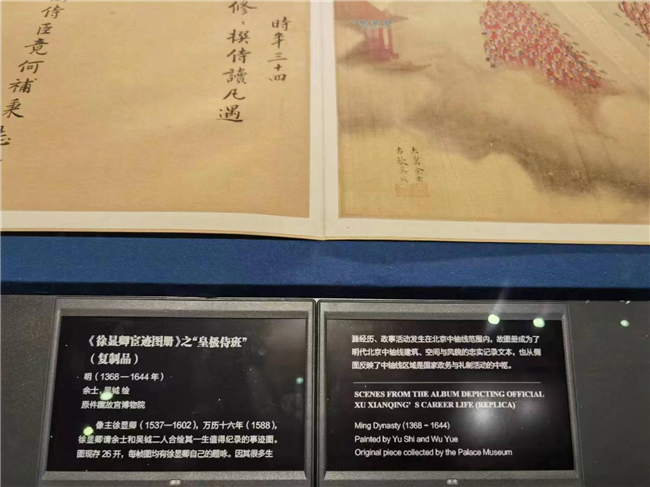 時年三十四
修、撰侍讀凡遇
侍臣竟何補乘
《徐显卿宦迹图册》之“皇极侍班”
（复制品）
明（1368—1644年）
余士、吴钺 绘
原件藏故宫博物院
像主徐显卿（1537—1602），万历十六年（1588），
徐显卿请余士和吴钺二人合绘其一生值得纪录的事迹图。
图现存26开，每帧图均有徐显卿自己的题咏。因其很多生
涯经历、政事活动发生在北京中轴线范围内，故图册成为了
明代北京中轴线建筑、空间与风貌的忠实记录文本，也从侧
面反映了中轴线区域是国家政务与礼制活动的中枢。
SCENES FROM THE ALBUM DEPICTING OFFICIAL
XU XIANQING'S CAREER LIFE (REPLICA)
Ming Dynasty (1368 – 1644)
Painted by Yu Shi and Wu Yue
Original piece collected by the Palace Museum